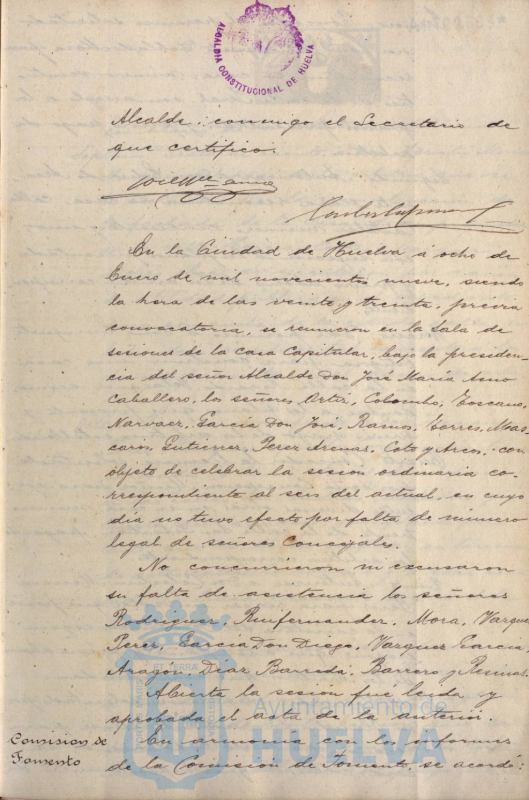 ALCALDIA CONSTITUCIONAL DE HUELVA
Alcalde: conmigo el Secretario de
que certifico.
En la Ciudad de Huelva á ocho de
Enero de mil novecientos nueve, siendo
la hora de las veinte y treinta, previa
convocatoria, se reunieron en la Sala de
sesiones de la casa Capitular, bajo la presiden-
cia del señor Alcalde Don José María Amo
Caballero, los señores Ortiz, Colombo, Toscano,
Narvaez, García Don José, Ramos, Torres, Mas-
caros, Gutierrez, Perez Arenas, Coto y Arcos, con
objeto de celebrar la sesión ordinaria co-
rrespondiente al seis del actual, en cuyo
dia no tuvo efecto por falta de número
legal de señores Concejales.
No concurrieron ni escusaron
su falta de asistencia los señores
Rodriguez, Ruifernandez, Mora, Vazquez
Perez, García Don Diego, Vazquez García,
Aragón, Diaz Barreda, Barrero y
Abierta la sesión fué leida y
aprobada el acta de la anterior.
Comision de
Fomento
En armonia con los informes
de la Comisión de Fomento, se acordó:
Ayuntamiento de
HUELVA